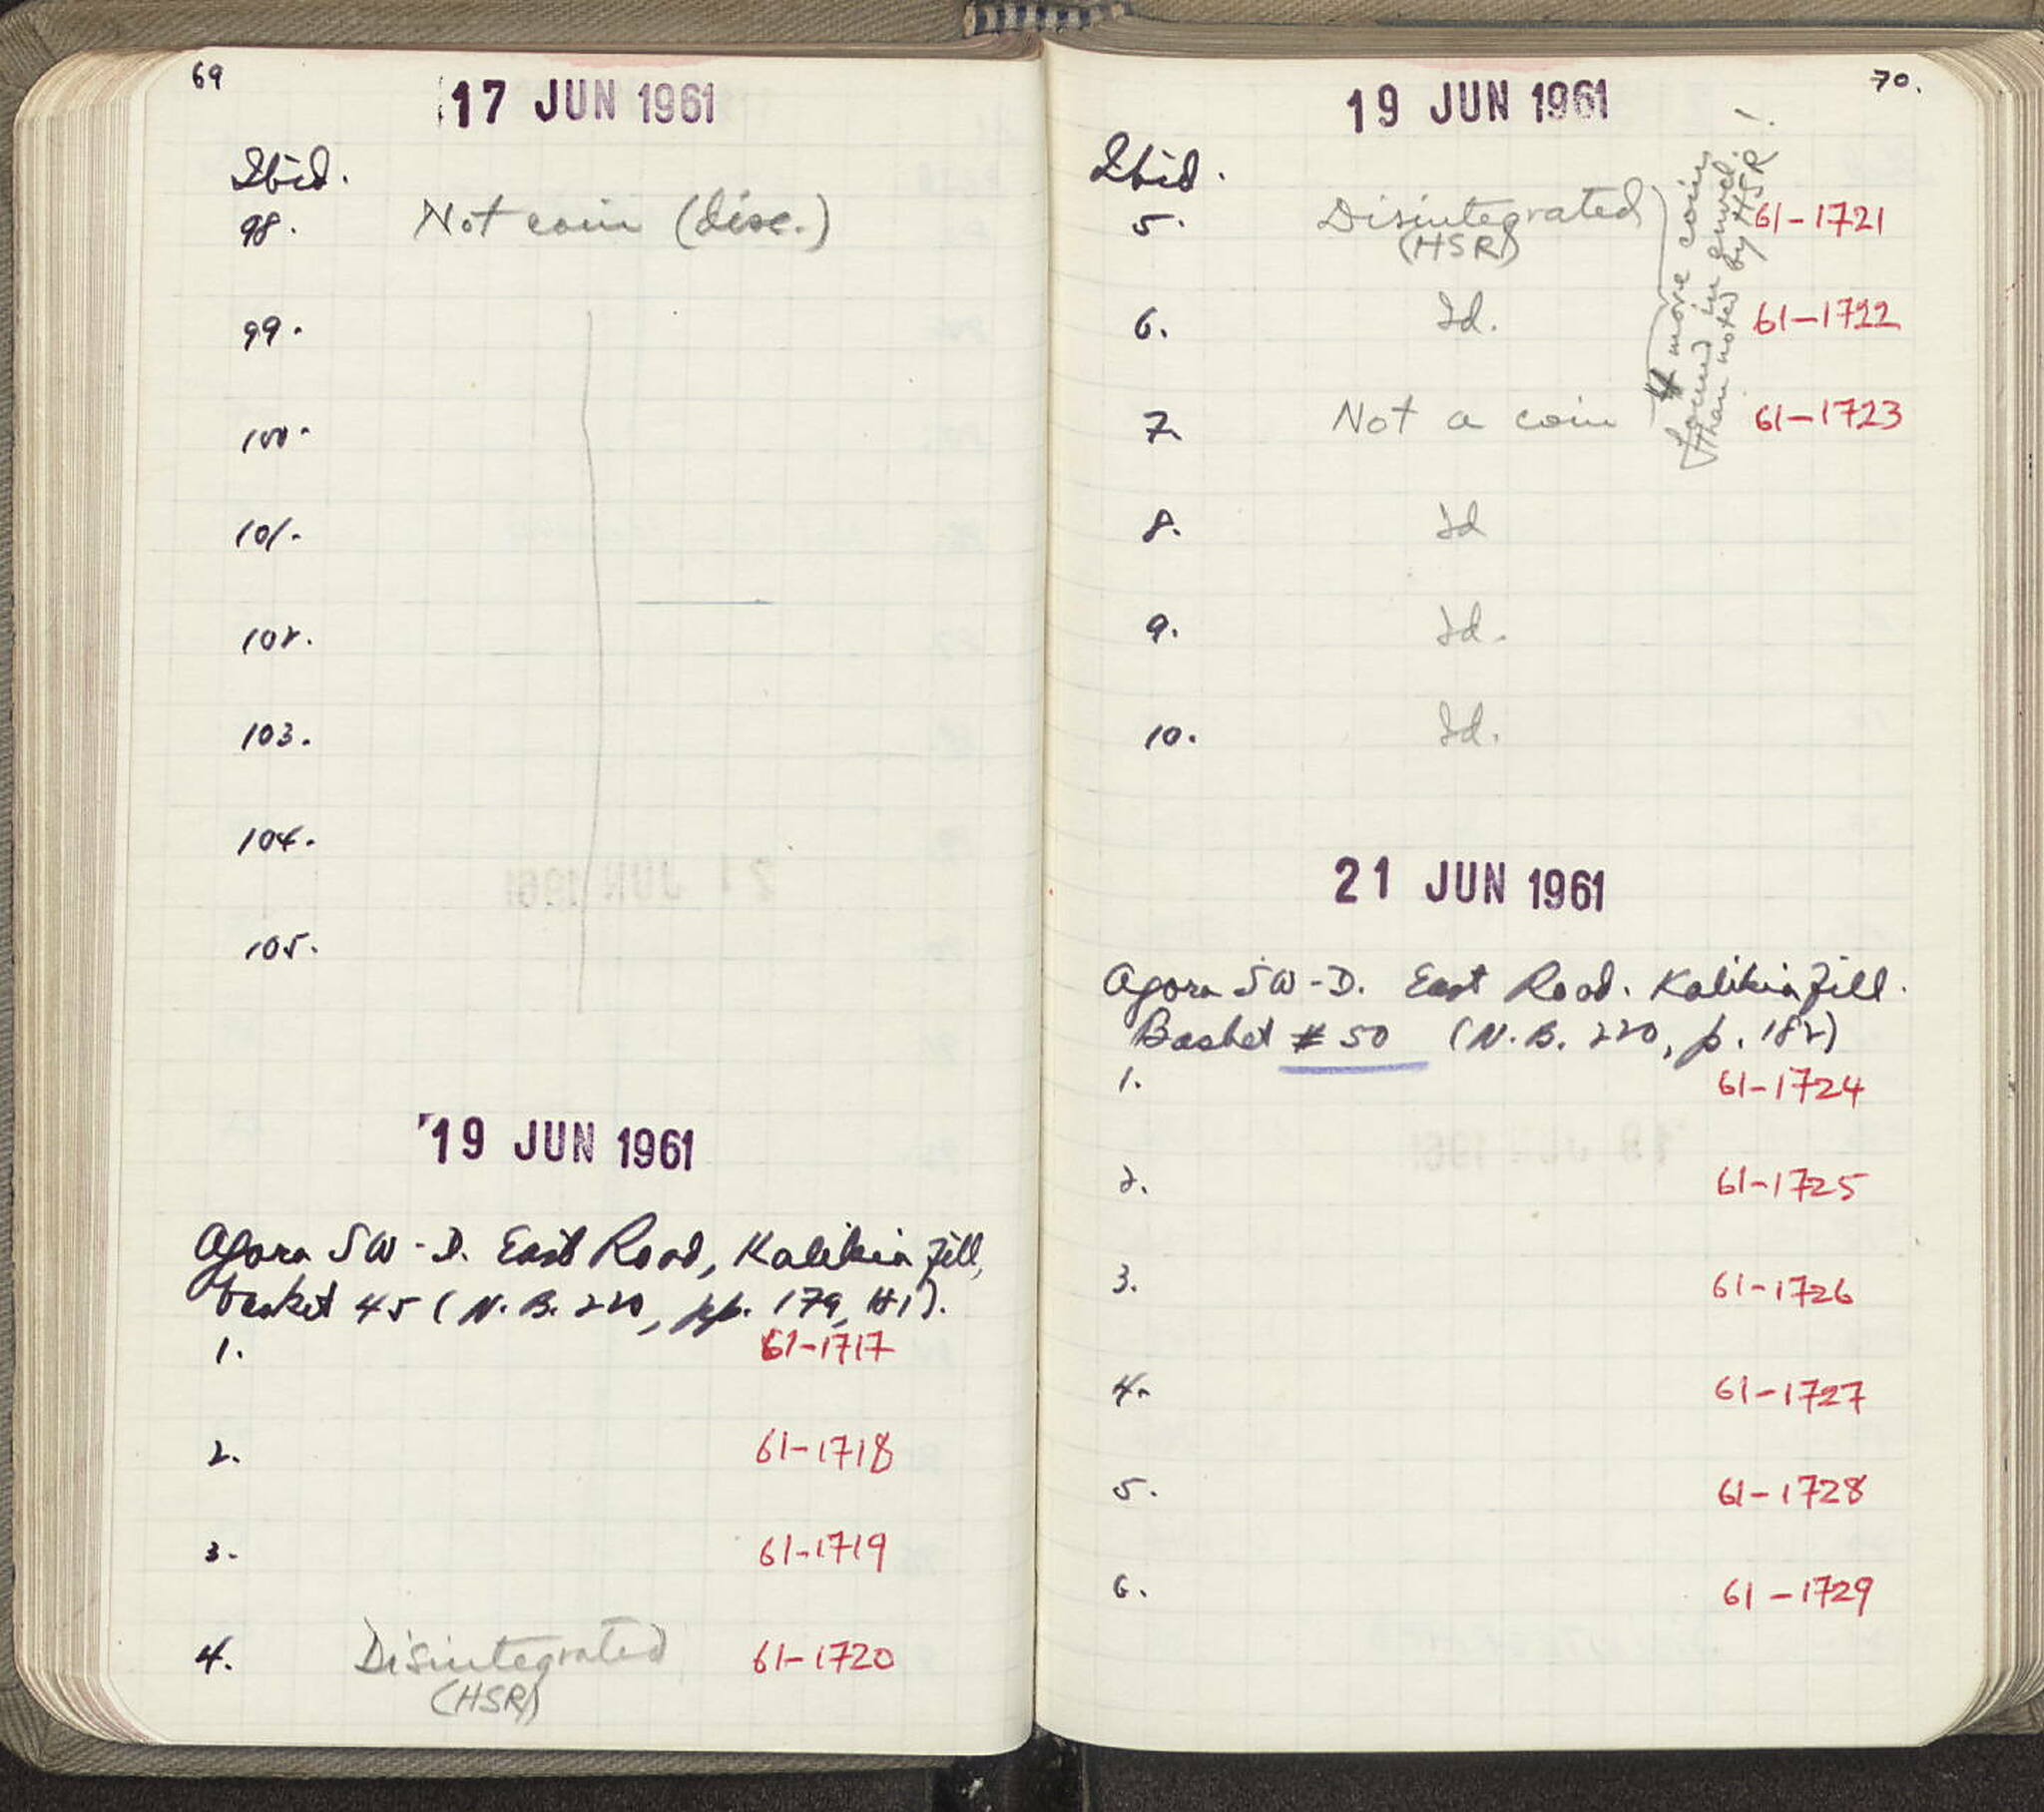 69
17 JUN 1961
Ibid.
98. Not coin (disc.)
99.
100.
101.
102.
103.
104.
105.
19 JUN 1961
Agora SW-D. East Road, Kalikia fill,
basket 45 (N.B. 220, pp. 179,
1. 61-1717
2. 61-1718
3. 61-1719
4. Disintegrated 61-1720
(HSR)
70.
19 JUN 1961
Ibid.
5. Disintegrated 61-1721
(HSR)
6. Id. 61-1722
7. Not a coin 61-1723
4 more coins
found in gravel
than noted by HSR!
8. Id
9. Id.
10. Id.
21 JUN 1961
Agora SW-D. East Road. Kalikia fill.
Basket #50 (N.B. 220, p. 182)
1. 61-1724
2. 61-1725
3. 61-1726
4. 61-1727
5. 61-1728
6. 61-1729